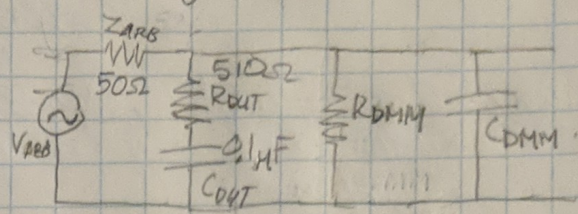 ZARB
50Ω
VARB
510Ω
RDUT
0.1µF
CDUT
RDMM
CDMM